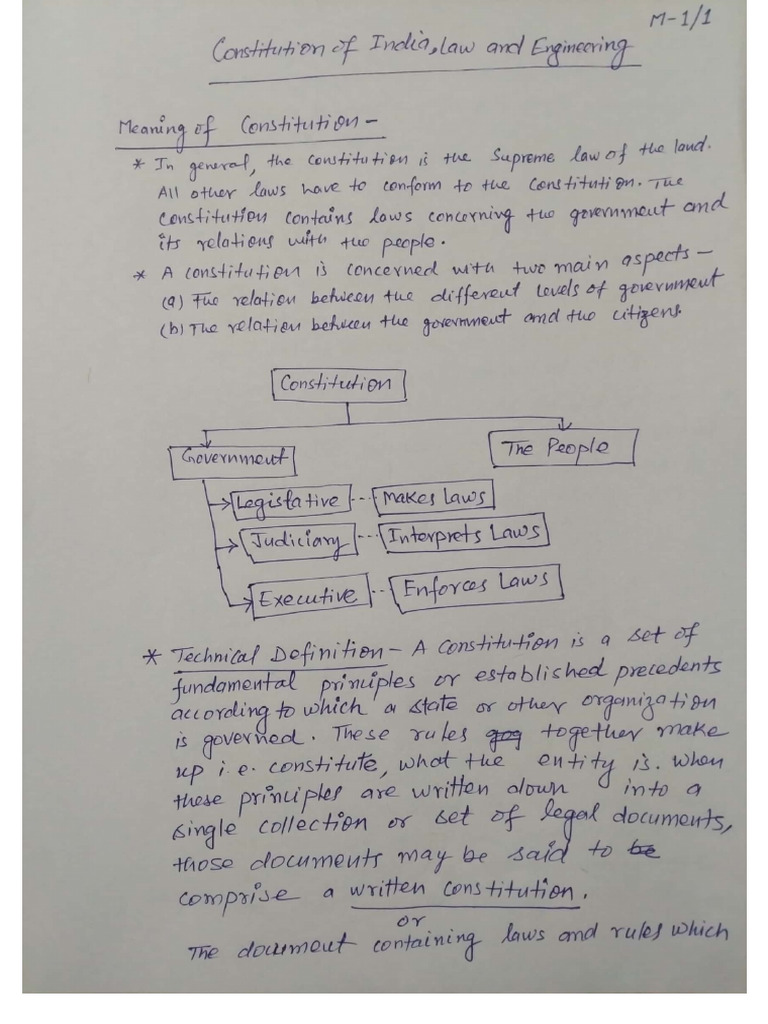 M-1/1
Constitution of India, Law and Engineering
Meaning of Constitution -
* In general, the constitution is the Supreme law of the land.
All other laws have to conform to the constitution. The
constitution contains laws concerning the government and
its relations with the people.
* A constitution is concerned with two main aspects -
(a) The relation between the different levels of government
(b) The relation between the government and the citizens.
Constitution
Government
The People
Legistative --- Makes Laws
Judiciary --- Interprets Laws
Executive --- Enforces Laws
* Technical Definition - A constitution is a set of
fundamental principles or established precedents
according to which a state or other organization
is governed. These rules together make
up i.e. constitute, what the entity is. When
these principles are written down into a
single collection or set of legal documents,
those documents may be said to be
comprise a written constitution.
or
The document containing laws and rules which